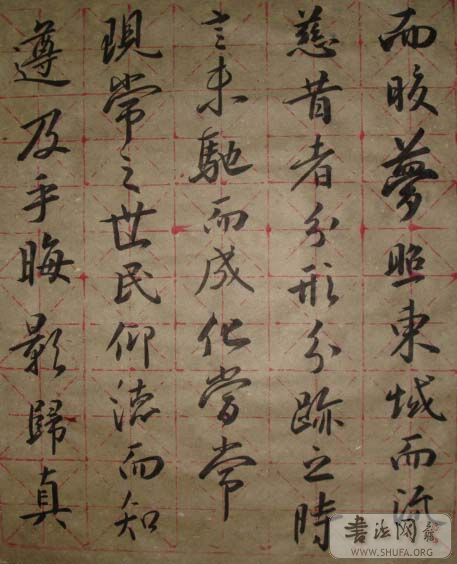 而晈夢照東域而流
慈昔者分形分跡之時
言未馳而成化當常
現常之世民仰德而知
遵及乎晦影歸真
書法网
WWW.SHUFA.ORG